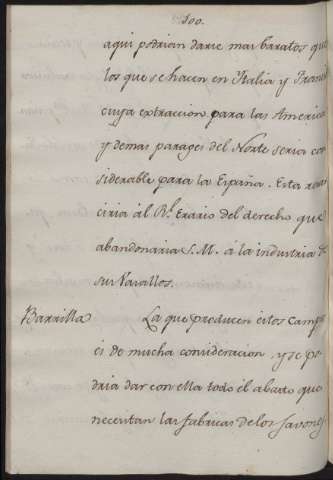 100.
aqui podrian darse mas baratos que
los que se hacen en Italia y Francia
cuya extraccion para las America
y demas parages del Norte seria con
siderable para la España. Esta resar
ciria ál Rl. Erario del derecho que
abandonaria S. M. á la industria de
sus Vasallos.
Barrilla La que producen estos Camp
es de mucha consideracion y se po
dria dar con ella todo el abasto que
necesitan las fabricas de los Javones